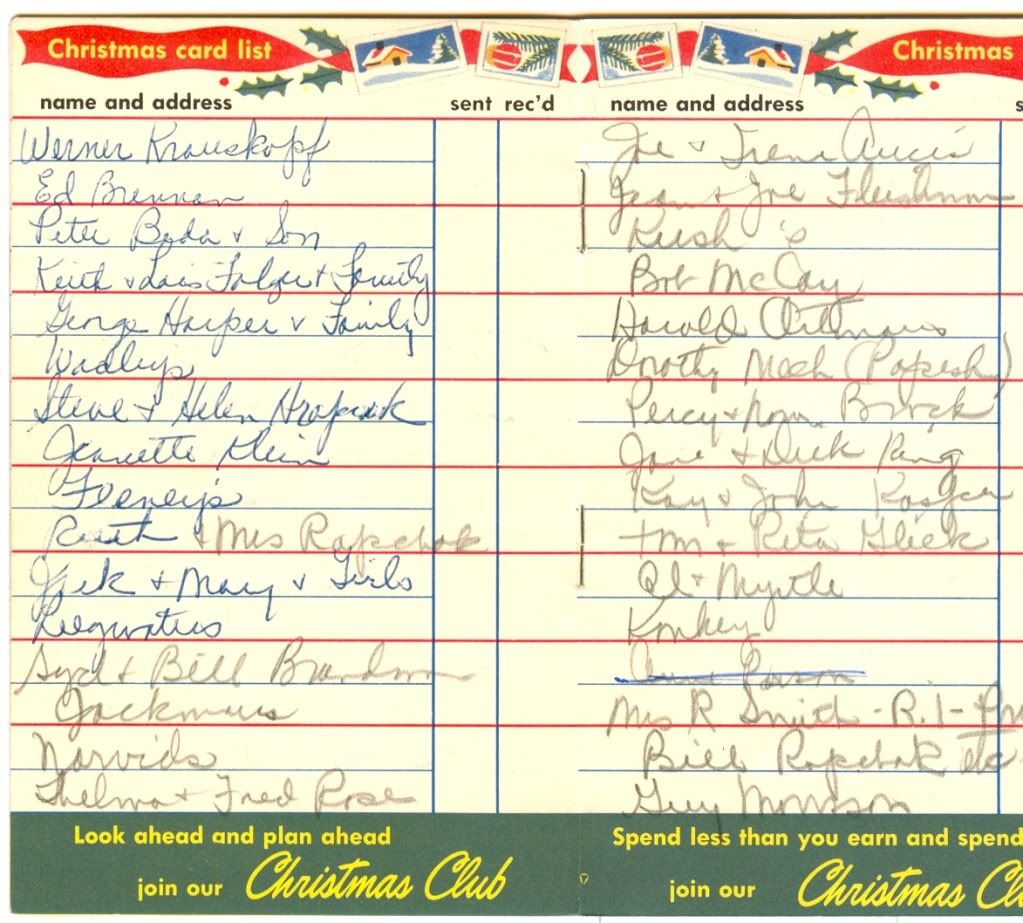 Christmas card list
name and address sent rec'd
Werner Krauskopf
Ed Brennan
Peter Boda + Son
Keith + Lois Folger + Family
George Harper + Family
Wadleys
Steve + Helen Hrapchak
Jeanette Klein
Feeney's
Ruth + Mrs Rapchak
Jack + Mary + Girls
Ridgwaters
Syd + Bill
Jackmans
Narvids
Thelma + Fred Rose
Look ahead and plan ahead
join our Christmas Club
Christmas
name and address s
Joe + Irene
Jean + Joe Fleishman
's
Bob McCay
Harold Oitlmans
Dorothy Mech (Papesh)
Percy + Norm Brock
Jane + Dick King
Kay + John
+ Rita Glick
Al + Myrtle
Konkey
Mrs R Smith - R.1 -
Bill Rapchak etc
Guy Morrison
Spend less than you earn and spend
join our Christmas Cl